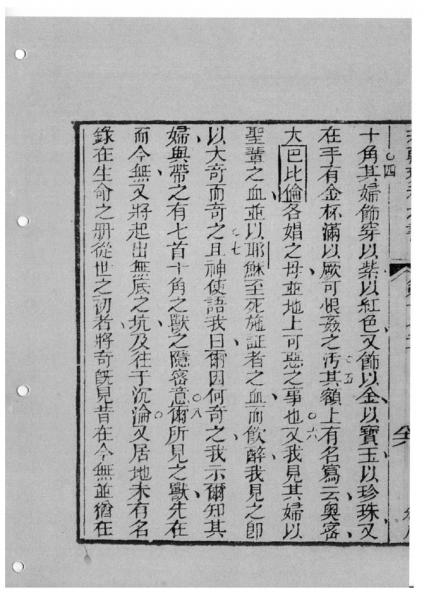 四
十角其婦飾穿以紫以紅色又飾以金以寶玉以珍珠又
五
在手有金杯滿以厥可恨姦之污其額上有名寫云奧密
六
大巴比倫各娼之母並地上可惡之事也又我見其婦以
聖輩之血並以耶穌至死施証者之血而飲醉我見之即
七
以大奇而奇之且神使語我曰爾因何奇之我示爾知其
八
婦與帶之有七首十角之獸之隱密意爾所見之獸先在
而今無又將起出無底之坑及往于沉淪又居地未有名
錄在生命之册從世之初者將奇旣見昔在今無並猶在